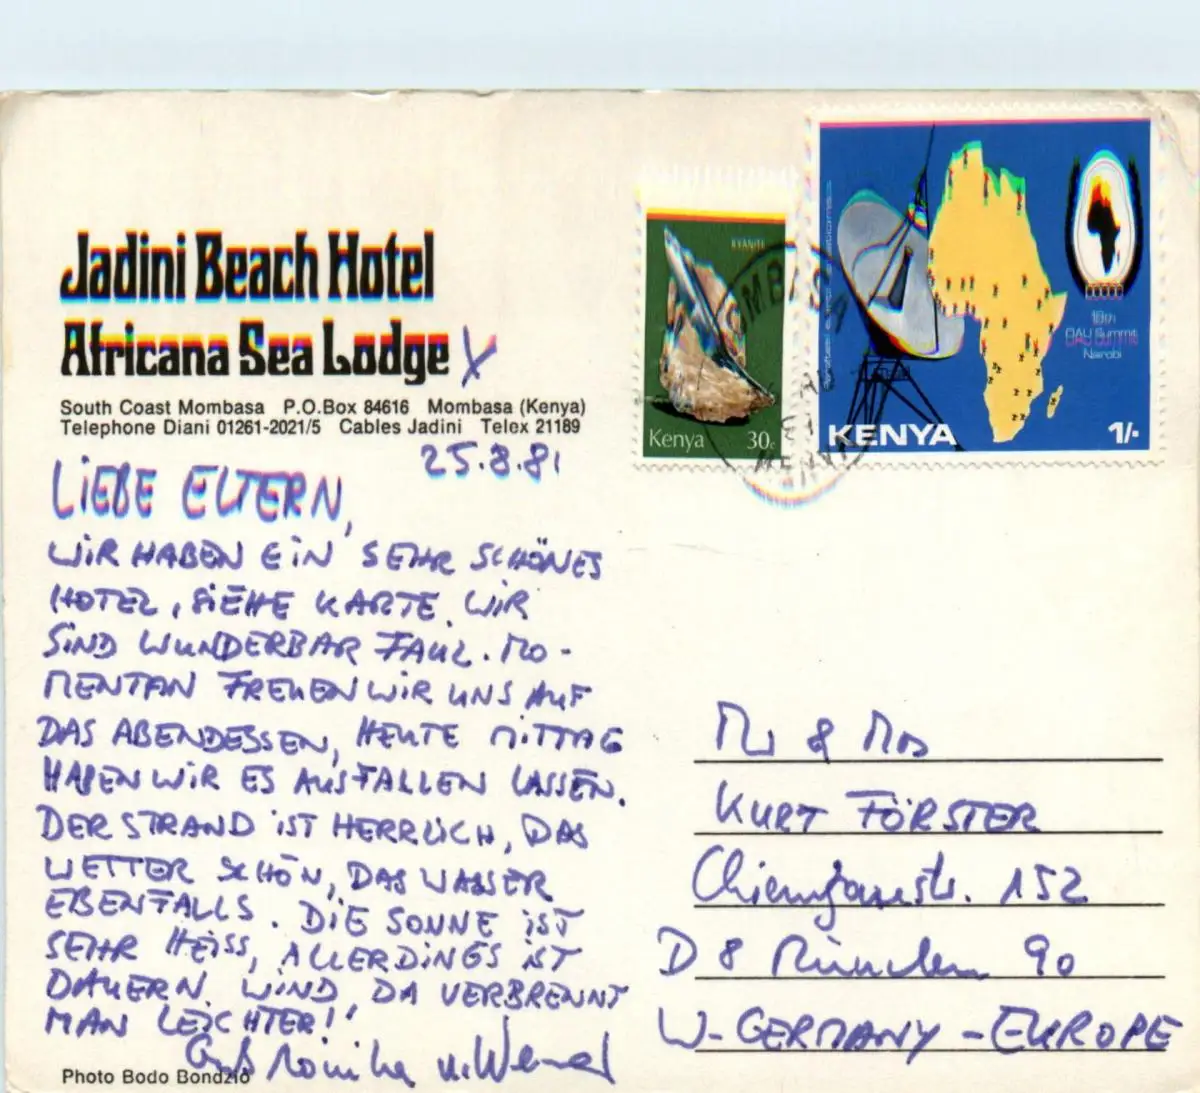 Jadini Beach Hotel
Africana Sea Lodge X
South Coast Mombasa P.O.Box 84616 Mombasa (Kenya)
Telephone Diani 01261-2021/5 Cables Jadini Telex 21189
25.8.81
LIEBE ELTERN,
WIR HABEN EIN SEHR SCHÖNES
HOTEL, SIEHE KARTE. WIR
SIND WUNDERBAR FAUL. MO-
MENTAN FREUEN WIR UNS AUF
DAS ABENDESSEN, HEUTE MITTAG
HABEN WIR ES AUSFALLEN LASSEN.
DER STRAND IST HERRLICH, DAS
WETTER SCHÖN, DAS WASSER
EBENFALLS. DIE SONNE IST
SEHR HEISS, ALLERDINGS IST
DAUERN. WIND, DA VERBRENNT
MAN LEICHTER!!
Gruß Monika u. Werner
Photo Bodo Bondzio
KYANITE
Kenya 30c
18th
OAU Summit
Nairobi
KENYA 1/-
Mr & Mrs
KURT FÖRSTER
Chiemgaustr. 152
D 8 München 90
W-GERMANY - EUROPE